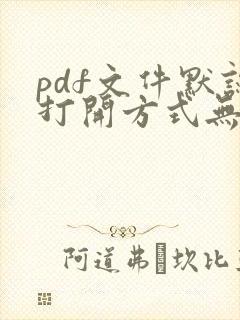 pdf文件默
打開方式無
阿道弗 坎比